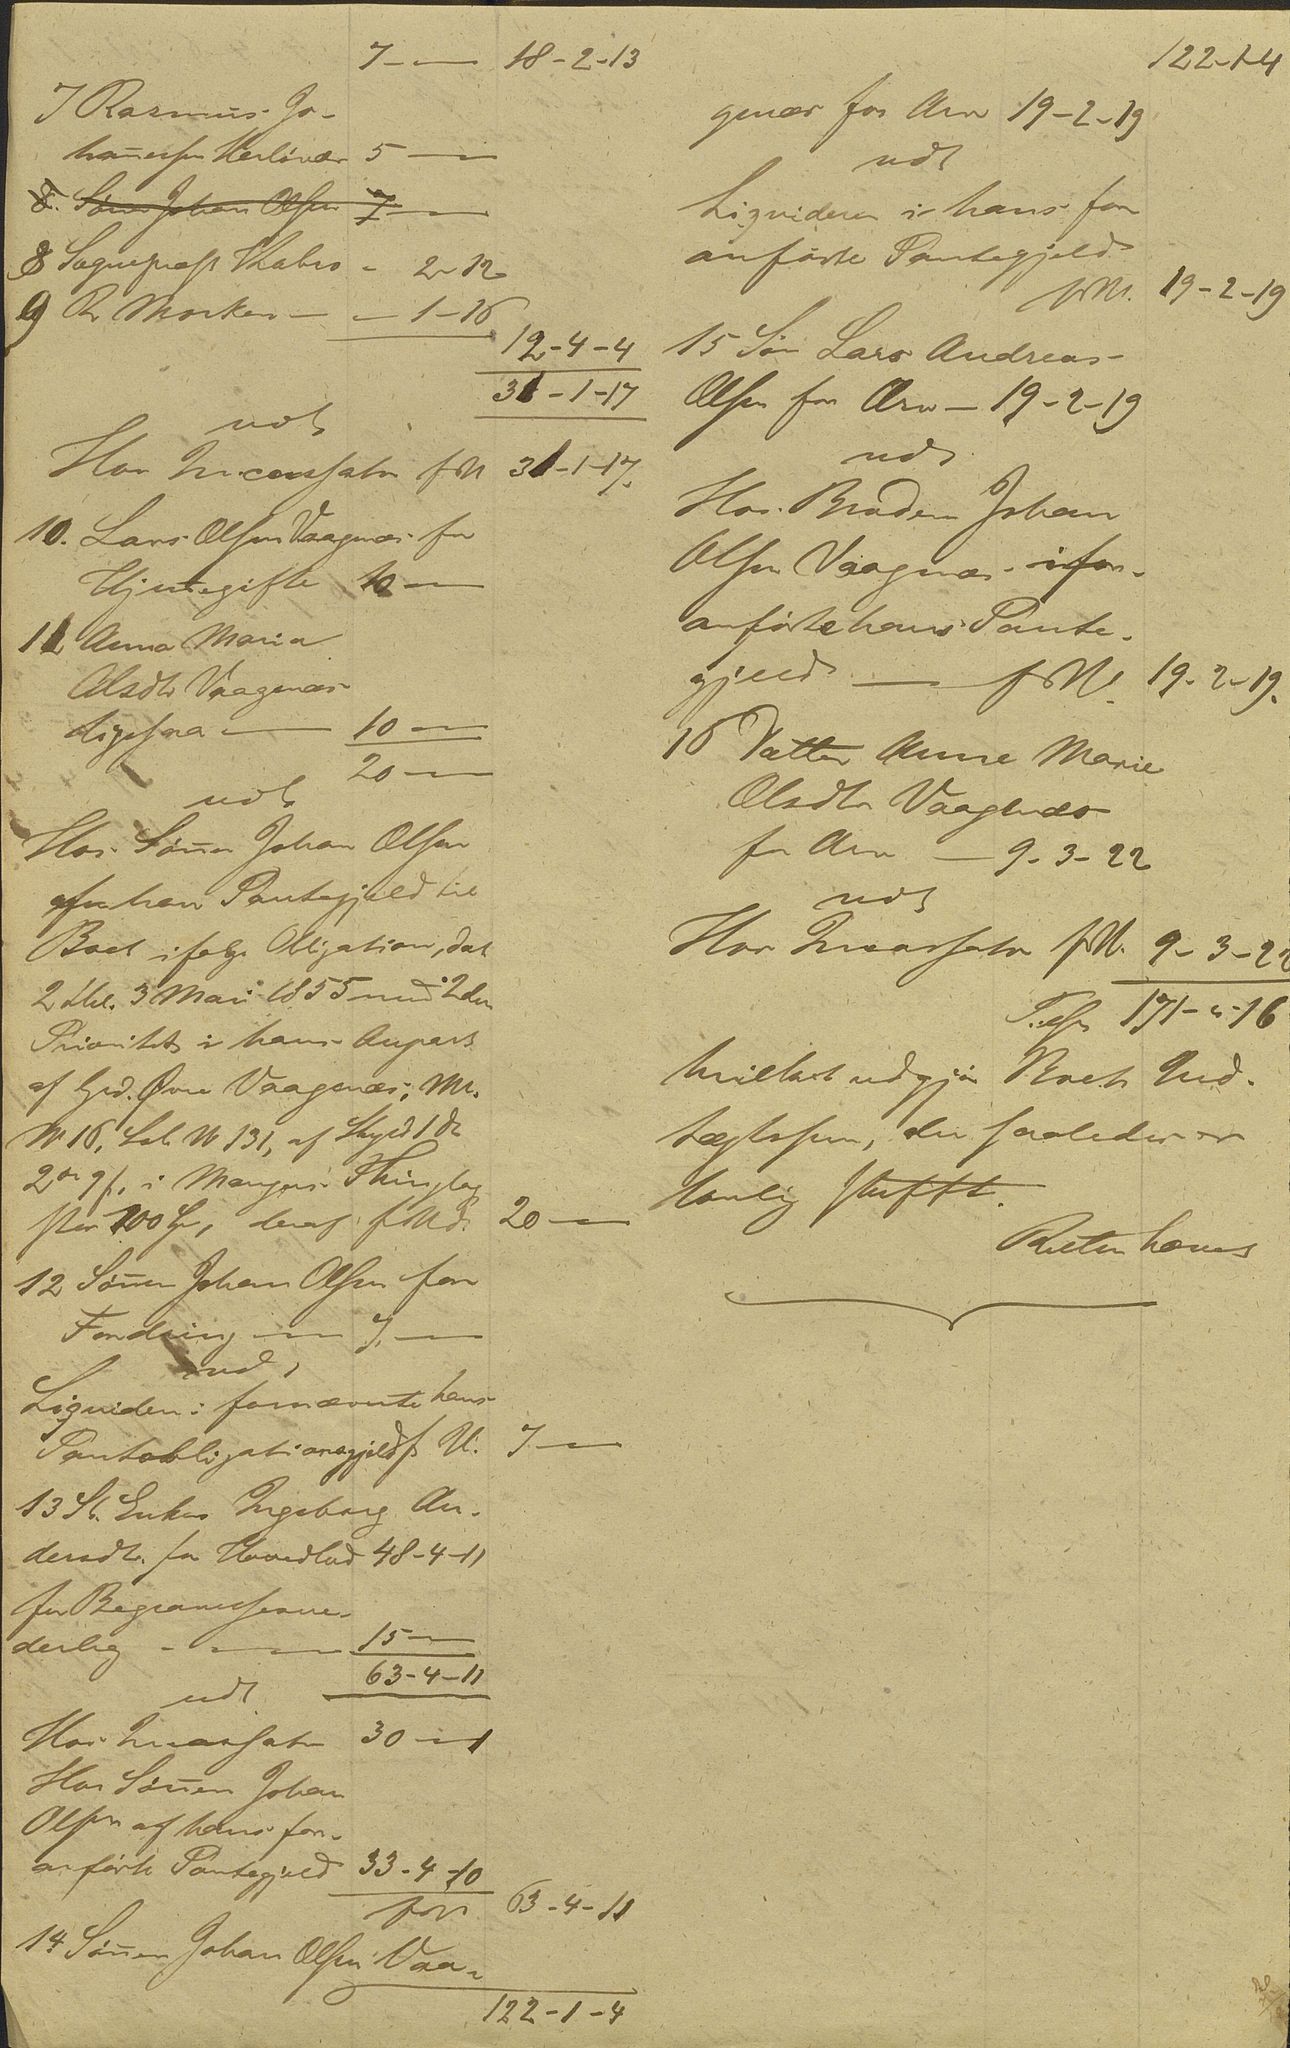 7 - — 18-2-13
7 Rasmus Jo-
hannessen Herlövær 5 —
8. Sönnen Johan Olsen 7 —
8 Sognepræst Krabes - 2-12
9 R Morken — — 1-16
12-4-4
31-1-17
udl
Hos Incassator fM 31-1-17.
10. Lars Olsen Vaagenæs for
Hjemmegifte 10 —
11 Anna Maria
Olsdtr Vaagenæs
ligesaa — 10 —
20 —
udl
Hos Sönnen Johan Olsen
af hans Pantegjeld til
Boet ifölge Obligation, dat
2 thl. 3 Mai 1855 med 2den
Prioritet i hans Anpart
af Grd. Övre Vaagenæs, Mr.
No 16, Lb No 131, af Skyld 1 dr
2 ort 9 s, i Mangers Thinglag
stor 700 Spd, deraf fMd. 20 —
12 Sönnen Johan Olsen for
Fordring — 7. —
udl
Liqviden i fornævnte hans
Pantobligationsgjeld f M. 7 —
13 St. Enken Ingeborg An-
dersdtr. for Hovedlod 48-4-11
for Begravelsesve-
derlag - — 15 —
63-4-11
udl
Hos Incassator 30 — 1
Hos Sönnen Johan
Olsen af hans for-
anförte Pantegjeld 33-4-10
fM 63-4-11
14 Sönnen Johan Olsen Vaa-
122-1-4
122-1-4
genæs for Arv 19-2-19
udl
Liqviden i hans for
anförte Pantegjeld
fM. 19-2-19
15 Sön Lars Andreas
Olsen for Arv — 19-2-19
udl.
Hos Broderen Johan
Olsen Vaagenæs i for-
anförte hans Pante-
gjeld — fM. 19-2-19.
16 Datter Anne Marie
Olsdtr Vaagenæs
for Arv — 9-3-22
udl
Hos Incassator fM. 9-3-22
171-"-16
hvilket udgjör Boets Ind-
tægtssum, der saaledes er
lovlig skiftet.
Retten hævet